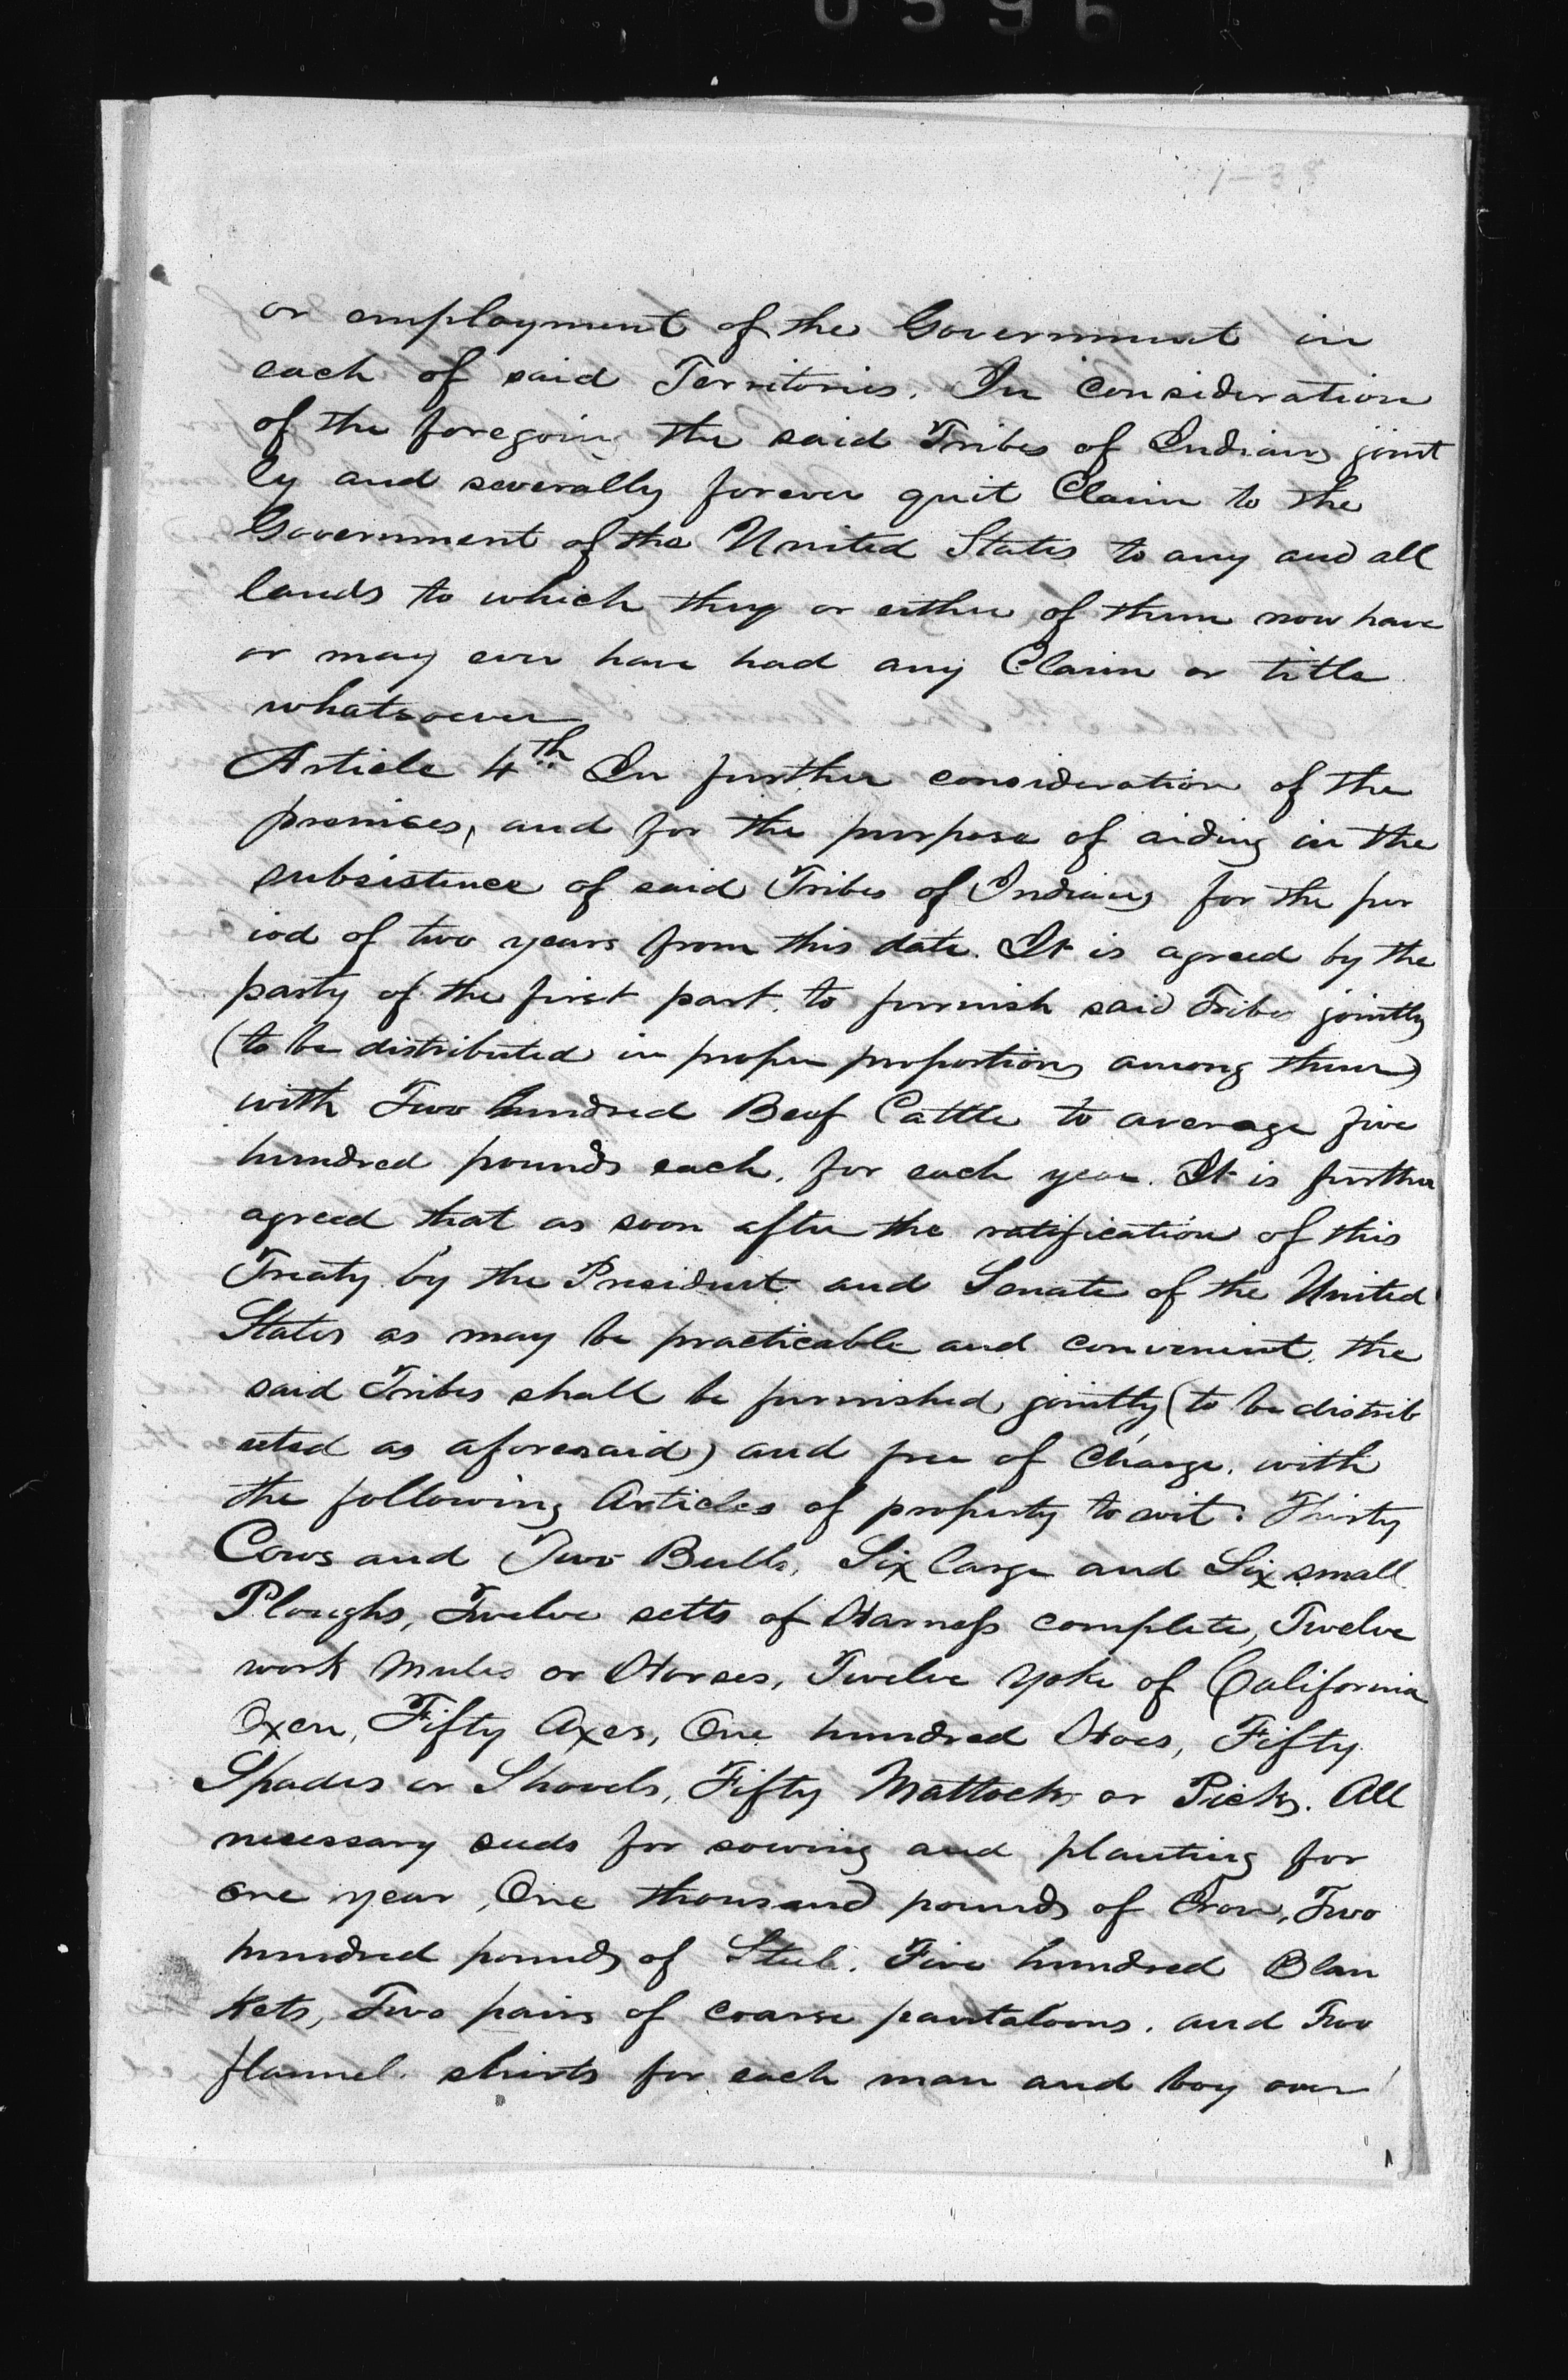 0596
1-38
or employment of the Government in
each of said Territories. In consideration
of the foregoing the said Tribes of Indians joint
ly and severally forever quit Claim to the
Government of the United States to any and all
lands to which they or either of them now have
or may ever have had any Claim or title
whatsoever
Article 4th In further consideration of the
premises, and for the purpose of aiding in the
subsistence of said Tribes of Indians for the per
iod of two years from this date. It is agreed by the
party of the first part, to furnish said Tribes jointly
(to be distributed in proper proportions among them)
with Two hundred Beef Cattle to average five
hundred pounds each, for each year. It is further
agreed that as soon after the ratification of this
Treaty by the President and Senate of the United
States as may be practicable and convenient, the
said Tribes shall be furnished jointly (to be distrib
uted as aforesaid) and free of Charge, with
the following Articles of property to wit: Thirty
Cows and Two Bulls, Six large and Six small
Ploughs, Twelve setts of Harness complete, Twelve
work Mules or Horses, Twelve Yoke of California
Oxen, Fifty Axes, One hundred Hoes, Fifty
Spades or Shovels, Fifty Mattocks or Picks. All
necessary seeds for sowing and planting for
one year, One thousand pounds of Iron, Two
hundred pounds of Steel. Five hundred Blan
kets, Two pairs of coarse pantaloons, and Two
flannel shirts for each man and boy over